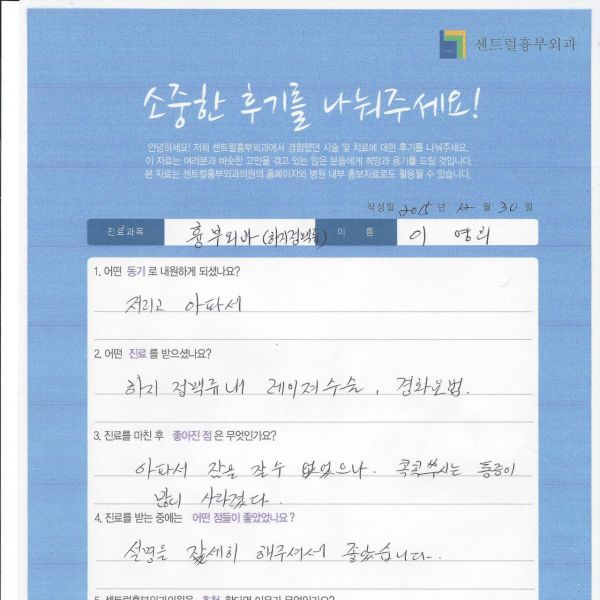 센트럴흉부외과
소중한 후기를 나눠주세요!
안녕하세요! 저희 센트럴흉부외과에서 경험했던 시술 및 치료에 대한 후기를 나눠주세요.
이 자료는 여러분과 비슷한 고민을 겪고 있는 많은 분들에게 희망과 용기를 드릴 것입니다.
본 자료는 센트럴흉부외과의원의 홈페이지와 병원 내부 홍보자료로도 활용될 수 있습니다.
작성일 2015 년 12 월 30 일
진료과목 흉부외과 (하지정맥류) 이 름 이 영희
1. 어떤 동기로 내원하게 되셨나요?
저리고 아파서
2. 어떤 진료를 받으셨나요?
하지 정맥류내 레이져수술, 경화요법.
3. 진료를 마친 후 좋아진 점은 무엇인가요?
아파서 잠을 잘수 없었으나. 콕콕쑤시는 통증이
많이 사라졌다.
4. 진료를 받는 중에는 어떤 점들이 좋았었나요?
설명을 잘세히 해주셔서 좋았습니다.
5. 센트럴흉부외과의원을 추천 한다면 이유가 무엇인가요?